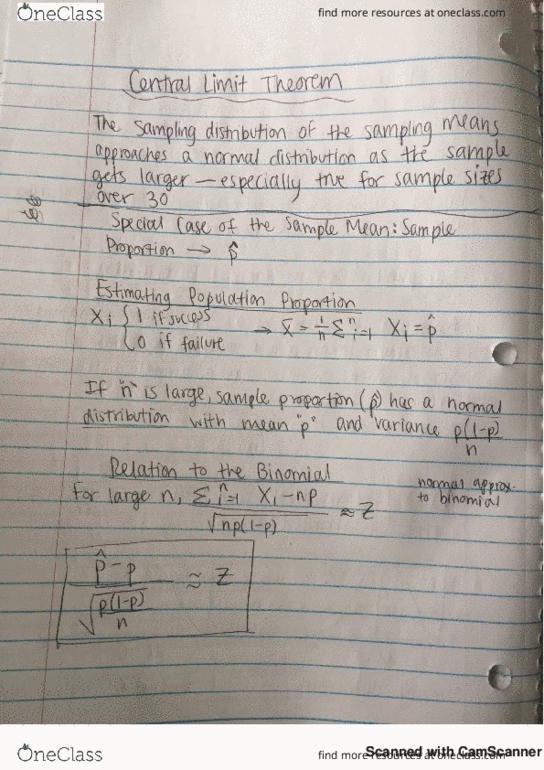 OneClass
find more resources at oneclass.com
Central Limit Theorem
The sampling distribution of the sampling means
approaches a normal distribution as the sample
gets larger — especially true for sample sizes
over 30
Special Case of the Sample Mean: Sample
Proportion → p̂
Estimating Population Proportion
Xi { 1 if sucess
0 if failure → x̄ = 1/n Σ ⁿi=1 Xi = p̂
If "n" is large, sample proportion (p̂) has a normal
distribution with mean "p" and variance p(1-p)/n
Relation to the Binomial
For large n, (Σ ⁿi=1 Xi - np)/√np(1-p) ≈ Z
normal approx.
to binomial
(p̂ - p)/√(p(1-p)/n) ≈ Z
OneClass
find more resources at oneclass.com
Scanned with CamScanner